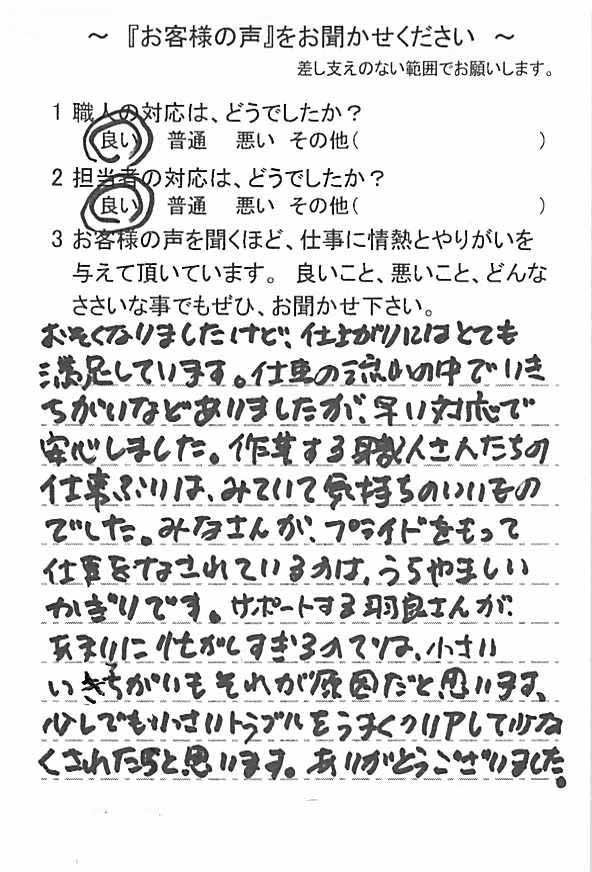 ～ 『お客様の声』をお聞かせください ～
差し支えのない範囲でお願いします。
1 職人の対応は、どうでしたか？
良い 普通 悪い その他( )
2 担当者の対応は、どうでしたか？
良い 普通 悪い その他( )
3 お客様の声を聞くほど、仕事に情熱とやりがいを
与えて頂いています。 良いこと、悪いこと、どんな
ささいな事でもぜひ、お聞かせ下さい。
おそくなりましたけど、仕上がりにはとても
満足しています。仕事の流れの中でいき
ちがいなどありましたが、早い対応で
安心しました。作業する職人さんたちの
仕事ぶりは、みていて気持ちのいいもの
でした。みなさんが、プライドをもって
仕事をなされているのは、うらやましい
かぎりです。サポートする羽良さんが、
あまりにいそがしすぎるのでは、小さい
いきちがいもそれが原因だと思います、
少しでも小さいトラブルをうまくクリアして少な
くされたらと思います。ありがとうございました。